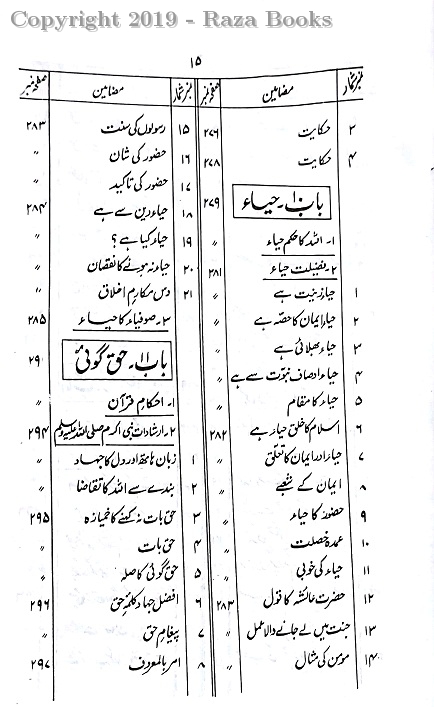 Copyright 2019 - Raza Books
۱۵
نمبر شمار مضامین صفحہ نمبر
۲ حکایت ۲۷۶
۴ حکایت ۲۷۸
باب ۱۰۔ حیاء ۲۷۹
۱۔ اللہ کا حکم حیاء 〃
۲۔ فضیلت حیاء ۲۸۱
۱ حیا زینت ہے 〃
۲ حیا ایمان کا حصّہ ہے 〃
۳ حیاء بھلائی ہے 〃
۴ حیاء اوصاف نبوّت سے ہے 〃
۵ حیاء کا مقام 〃
۶ اسلام کا خلق حیاء ہے ۲۸۲
۷ حیاء اور ایمان کا تعلق 〃
۸ ایمان کے شعبے 〃
۹ حضورؐ کا حیاء 〃
۱۰ عمدہ خصلت 〃
۱۱ حیاء کی خوبی 〃
۱۲ حضرت عائشہؓ کا قول ۲۸۳
۱۳ جنت میں لے جانے والا عمل 〃
۱۴ مومن کی مثال 〃
نمبر شمار مضامین صفحہ نمبر
۱۵ رسولوں کی سنت ۲۸۳
۱۶ حضور کی شان 〃
۱۷ حضور کی تاکید 〃
۱۸ حیاء دین سے ہے ۲۸۴
۱۹ حیاء کیا ہے؟ 〃
۲۰ حیاء نہ ہونے کا نقصان 〃
۲۱ دس مکارم اخلاق 〃
۳۔ صوفیاء کا حیاء ۲۸۵
باب ۱۱۔ حق گوئی ۲۹۰
۱۔ احکام قرآن
۲۔ ارشادات نبی اکرم صلی اللہ علیہ وسلم ۲۹۴
۱ زبان ہاتھ اور دل کا جہاد 〃
۲ بندے سے اللہ کا تقاضا 〃
۳ حق بات نہ کہنے کا خمیازہ ۲۹۵
۴ حق بات 〃
۵ حق گوئی کا صلہ 〃
۶ افضل جہاد کلمۂ حق ۲۹۶
۷ پیغام حق 〃
۸ امر بالمعروف ۲۹۷